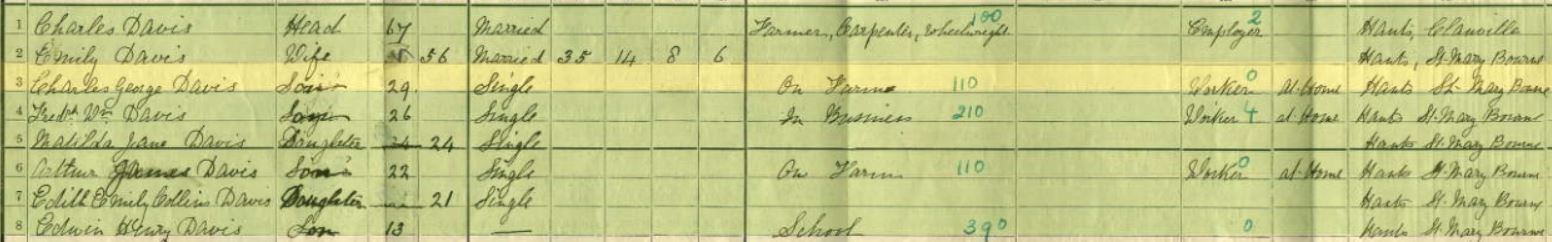 1 Charles Davis Head 67 Married Farmer, Carpenter, Wheelwright 100 Employer 2 Hants, Clanville
2 Emily Davis Wife 56 Married 35 14 8 6 Hants, St Mary Bourne
3 Charles George Davis Son 29 Single On Farm 110 Worker 0 at Home Hants St Mary Bourne
4 Fredk Wm Davis Son 26 Single In Business 210 Worker 4 at Home Hants St Mary Bourne
5 Matilda Jane Davis Daughter 24 Single Hants St Mary Bourne
6 Arthur James Davis Son 22 Single On Farm 110 Worker 0 at Home Hants St Mary Bourne
7 Edith Emily Collins Davis Daughter 21 Single Hants St Mary Bourne
8 Edwin Henry Davis Son 13 — School 390 0 Hants St Mary Bourne